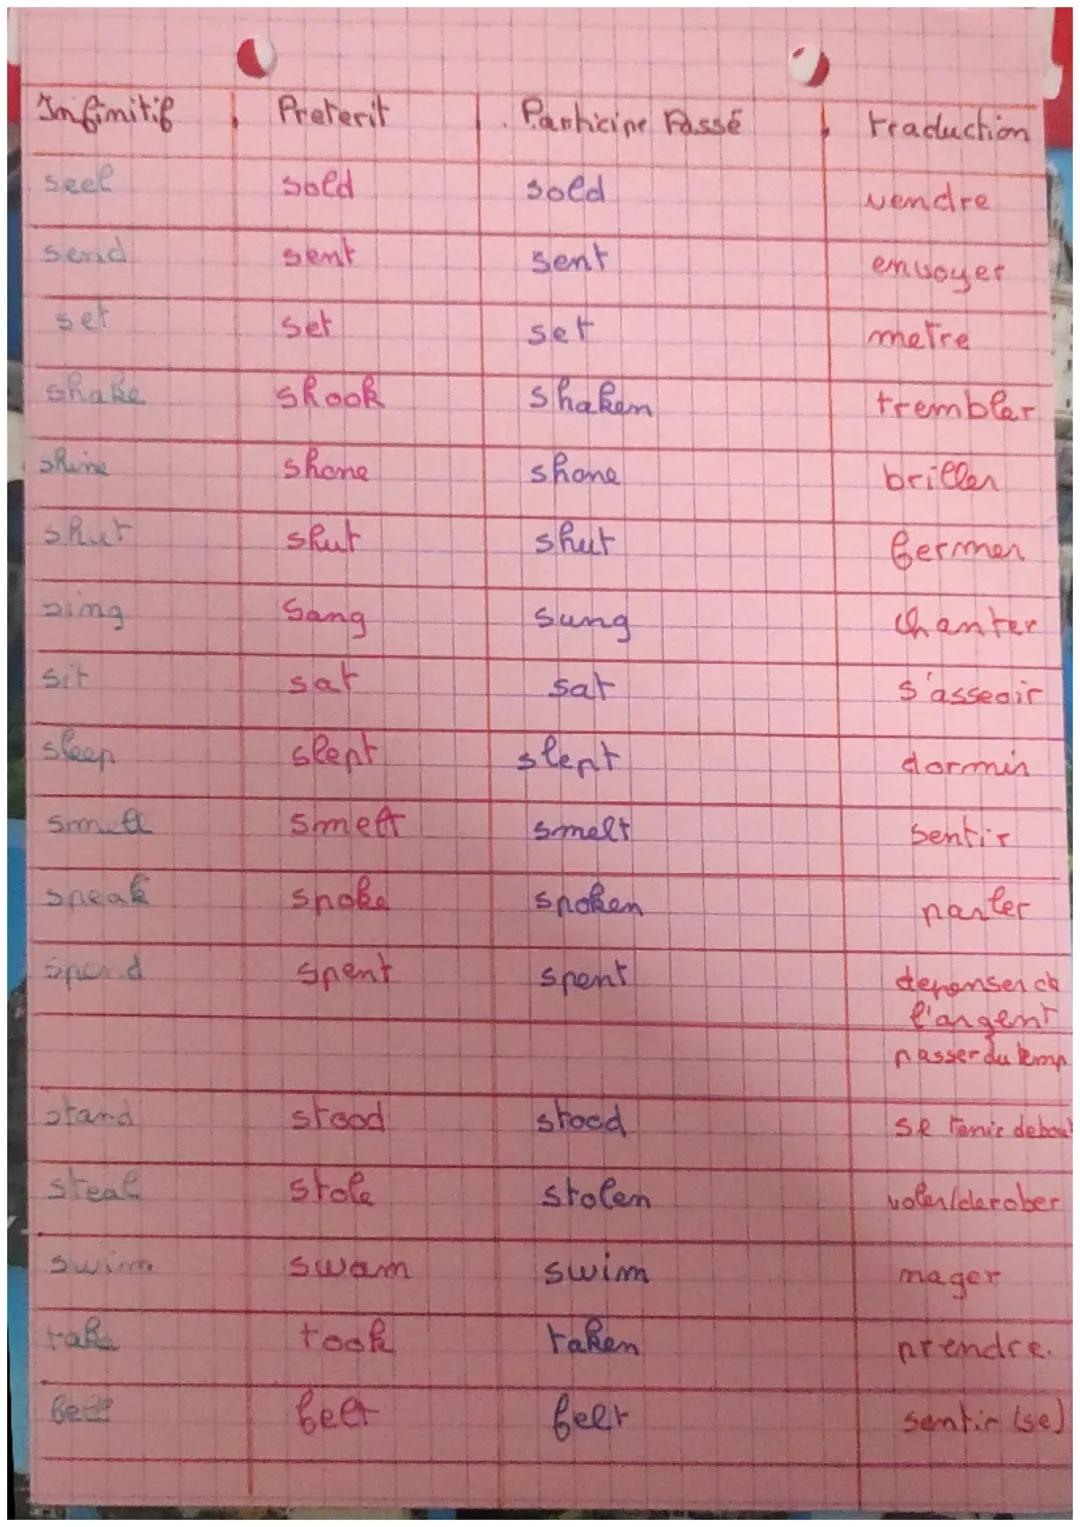 Infinitif Preterit Participe Passé traduction
seel sold sold vendre
send sent sent envoyer
set set set metre
shake shook shaken trembler
shine shone shone briller
shut shut shut fermer
sing sang sung chanter
sit sat sat s'asseoir
sleep slept slept dormir
smell smelt smelt sentir
speak spoke spoken parler
spend spent spent depenser de
l'argent
passer du temp
stand stood stood se tenir debout
steal stole stolen voler/derober
swim swam swim nager
take took taken prendre.
felt felt sentir (se)